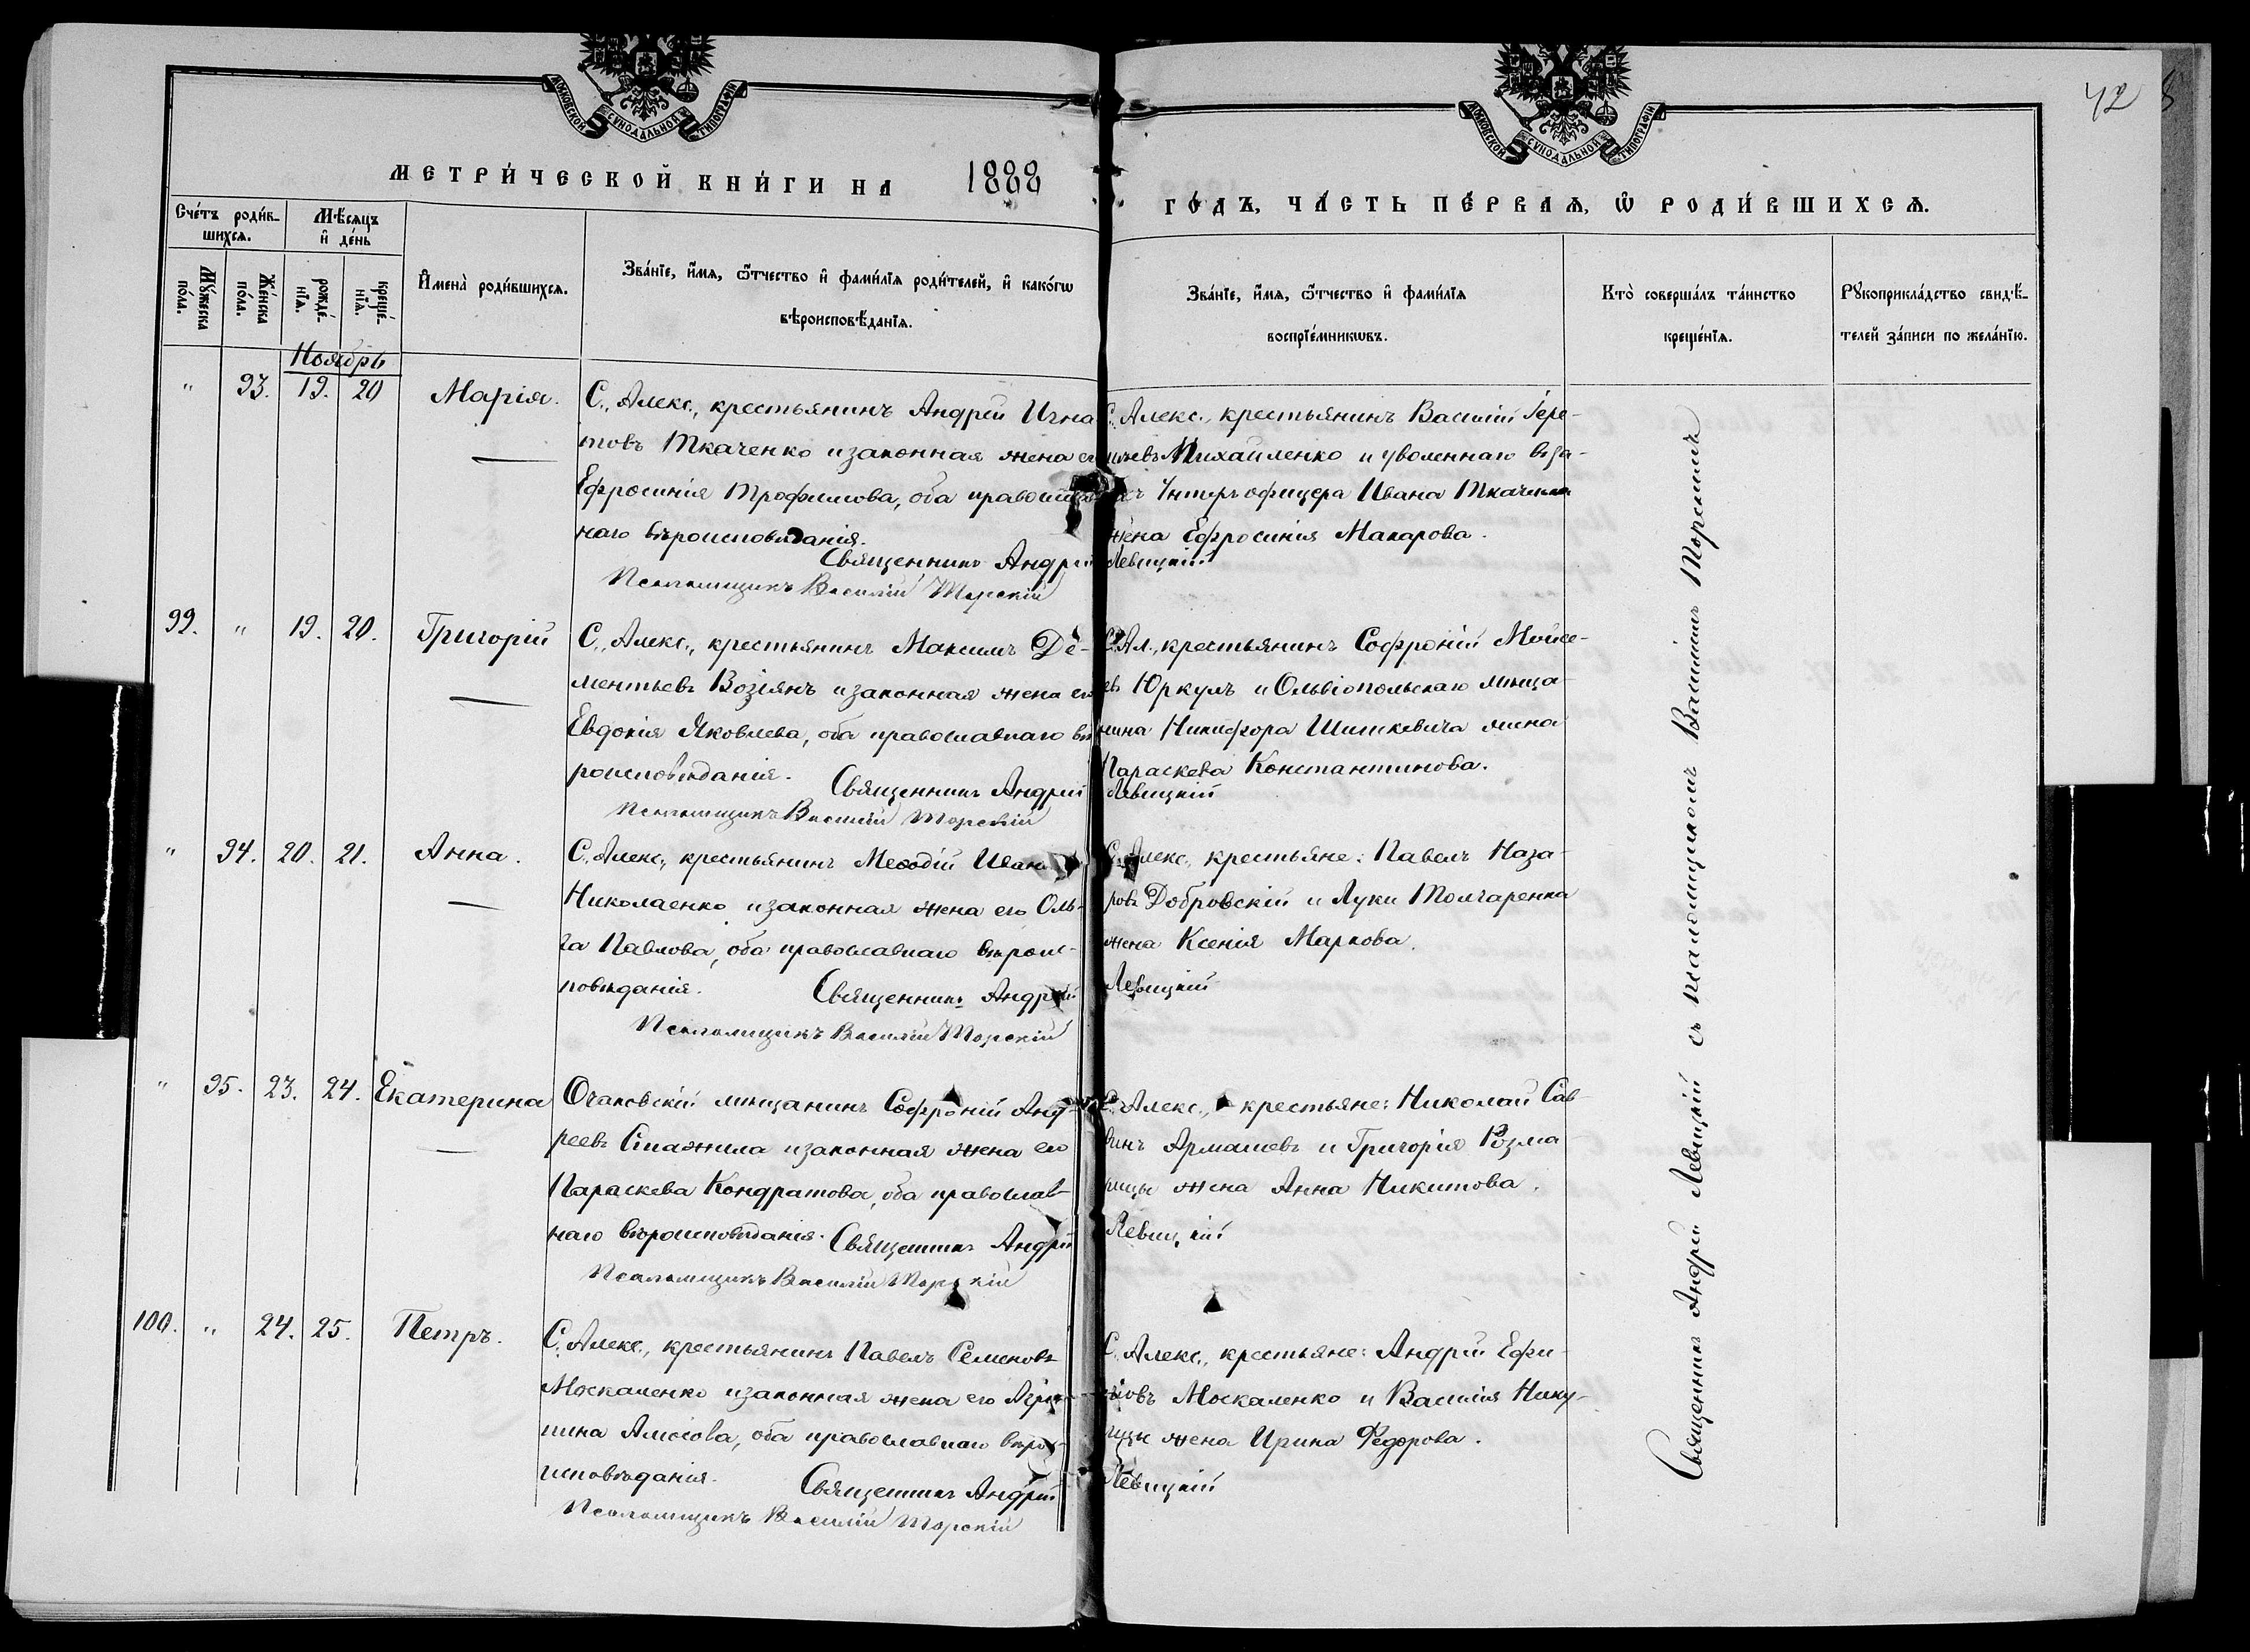 МОСКОВСКОЙ СУНОДАЛЬНОЙ ТИПОГРАФІИ
МОСКОВСКОЙ СУНОДАЛЬНОЙ ТИПОГРАФІИ
42
МЕТРИ́ЧЕСКОЙ КНИ́ГИ НА 1888
ГО́ДЪ, ЧА́СТЬ ПЕ́РВАѦ, Ѡ҆ РОДИ́ВШИХСѦ.
Сче́тъ роди́в-
шихсѧ.
Мѣ́сяцъ
и҆ де́нь
Му́жеска по́ла.
Же́нска по́ла.
рожде́-нїѧ.
креще́-нїѧ.
И҆мена̀ роди́вшихсѧ.
Зва́нїе, и҆́мѧ, ѻ҆́тчество и҆ фами́лїѧ роди́телей, и҆ како́гѡ
вѣроисповѣ́данїѧ.
Зва́нїе, и҆́мѧ, ѻ҆́тчество и҆ фами́лїѧ
воспрїе́мникѡвъ.
Кто̀ соверша́лъ та́инство
креще́нїѧ.
Рꙋкоприкла́дство свидѣ́-
телей за́писи по жела́нїю.
Ноябрь
" 93. 19. 20 Марія.
С. Алекс., крестьянинъ Андрей Игна
товъ Ткаченко и законная жена его
Ефросинія Трофимова, оба православ
наго вѣроисповѣданія.
Священникъ Андрей Левицкій
Псаломщикъ Василій Торскій
С. Алекс., крестьянинъ Василій
Михайленко и уволеннаго въ за-
Унтеръ офицера Ивана Ткаченка
жена Ефросинія Макарова.
99. " 19. 20. Григорій
С. Алекс., крестьянинъ Максимъ Де-
ментьевъ Возіянъ и законная жена его
Евдокія Яковлева, оба православнаго вѣ
роисповѣданія.
Священникъ Андрей Левицкій
Псаломщикъ Василій Торскій
С. Ал., крестьянинъ Софроній Мойсе-
евъ Юркулъ и Ольвіопольскаго мѣща-
нина Никифора Шишкевича жена
Параскева Константинова.
" 94. 20. 21. Анна.
С. Алекс., крестьянинъ Меѳодій Иван
Николаенко и законная жена его Оль-
га Павлова, оба православнаго вѣроис-
повѣданія.
Священникъ Андрей Левицкій
Псаломщикъ Василій Торскій
С. Алекс., крестьяне: Павелъ Наза-
ровъ Добровскій и Луки Толчаренка
жена Ксенія Маркова.
" 95. 23. 24. Екатерина
Очаковскій мѣщанинъ Софроній Анд-
реевъ и законная жена его
Параскева Кондратова, оба православ-
наго вѣроисповѣданія.
Священникъ Андрей Левицкій
Псаломщикъ Василій Торскій
С. Алекс., крестьяне: Николай Сав-
винъ Армашевъ и Григорія Розма
рицы жена Анна Никитова.
100. " 24. 25. Петръ.
С. Алекс., крестьянинъ Павелъ Семеновъ
Москаленко и законная жена его Агри-
пина Амосова, оба православнаго вѣро-
исповѣданія.
Священникъ Андрей Левицкій
Псаломщикъ Василій Торскій
С. Алекс., крестьяне: Андрей Ефи-
мовъ Москаленко и Василія Нику-
лицы жена Ирина Федорова.
Священникъ Андрей Левицкій съ псаломщикомъ Василіемъ Торскимъ